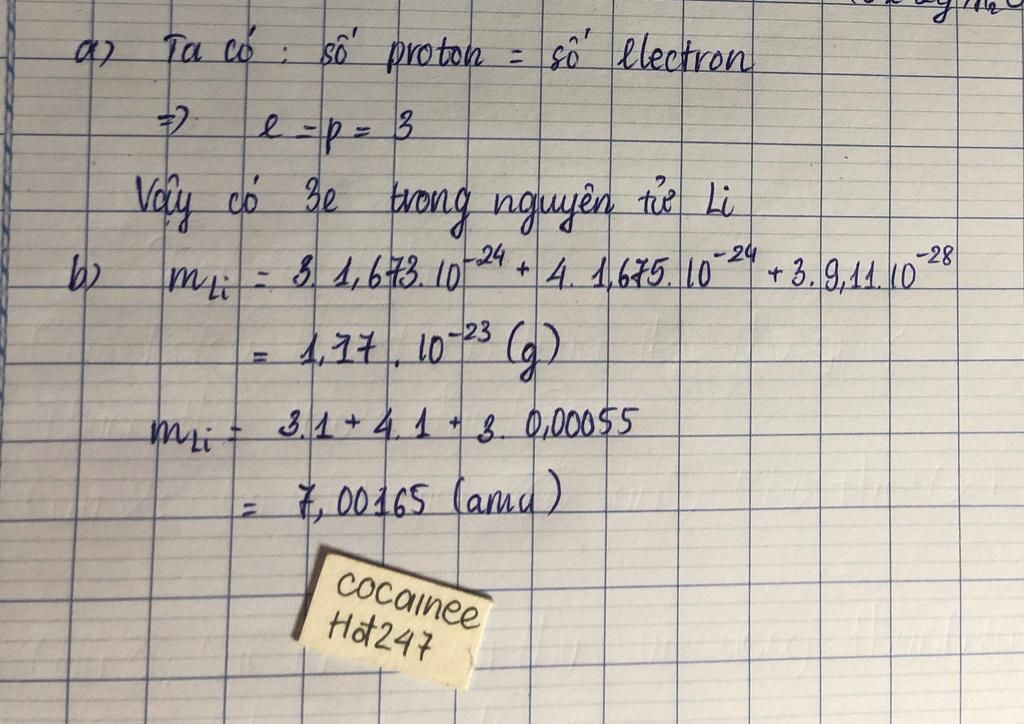 a) Ta có : số proton = số electron
=> e = p = 3
Vậy có 3e trong nguyên tử Li
b) m_Li = 3. 1,673.10^-24 + 4. 1,675.10^-24 + 3.9,11.10^-28
= 1,17 . 10^-23 (g)
m_Li = 3.1 + 4.1 + 3. 0,00055
= 7,00165 (amu)
cocainee
Hot247